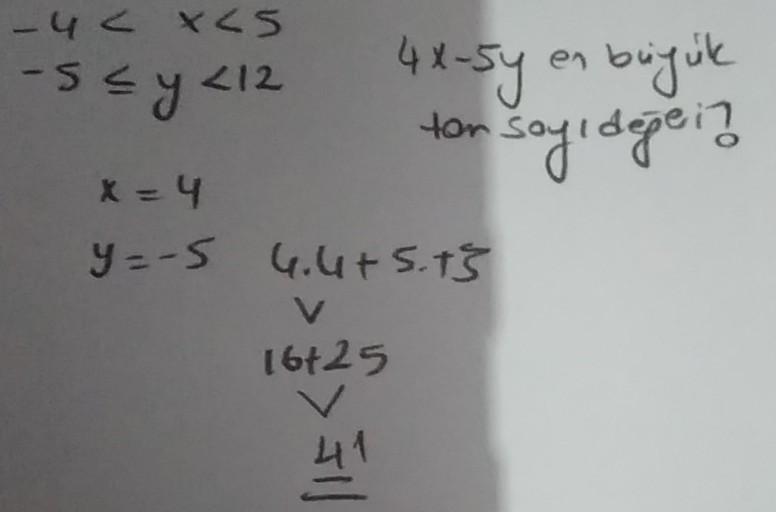 -4 < x<5
-5 ≤ y <12
4x-5y en büyük
tam sayı değeri?
x = 4
y=-5 4.4+5.+5
16+25
41